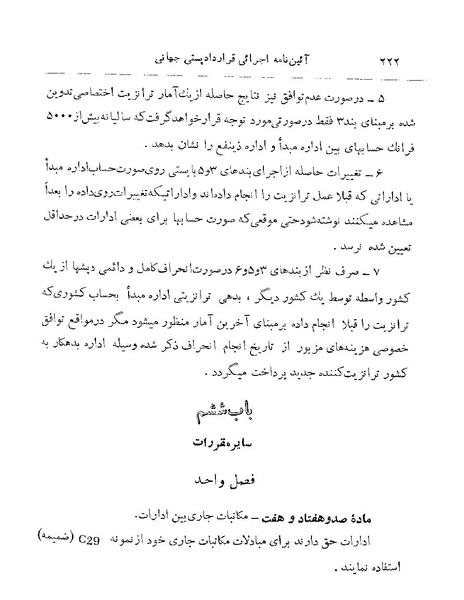 ۲۲۲ آئین‌نامه اجرائی قرارداد پستی جهانی
۵ ـ درصورت عدم توافق نیز نتایج حاصله از یک آمار ترانزیت اختصاصی تدوین
شده برمبنای بند ۳ فقط درصورتی مورد توجه قرار خواهد گرفت که سالیانه بیش از ۵۰۰۰
فرانک حسابهای بین اداره مبدأ و اداره ذینفع را نشان بدهد .
۶ ـ تغییرات حاصله از اجرای بندهای ۳ و ۵ بایستی روی صورت حساب اداره مبدأ
با اداراتی که قبلا عمل ترانزیت را انجام داده‌اند و اداراتیکه تغییرات روی داده را بعداً
مشاهده میکنند نوشته شود حتی موقعی که صورت حسابها برای بعضی ادارات در حداقل
تعیین شده نرسد .
۷ ـ صرف نظر از بندهای ۳ و ۵ و ۶ درصورت انحراف کامل و دائمی دپشها از یک
کشور واسطه توسط یک کشور دیگر ، بدهی ترانزیتی اداره مبدأ بحساب کشوری که
ترانزیت را قبلا انجام داده برمبنای آخرین آمار منظور میشود مگر درمواقع توافق
خصوصی هزینه‌های مزبور از تاریخ انجام انحراف ذکر شده وسیله اداره بدهکار به
کشور ترانزیت‌کننده جدید پرداخت میگردد .
باب ششم
سایر مقررات
فصل واحد
مادهٔ صد و هفتاد و هفت ـ مکاتبات جاری بین ادارات.
ادارات حق دارند برای مبادلات مکاتبات جاری خود از نمونه C29 (ضمیمه)
استفاده نمایند .